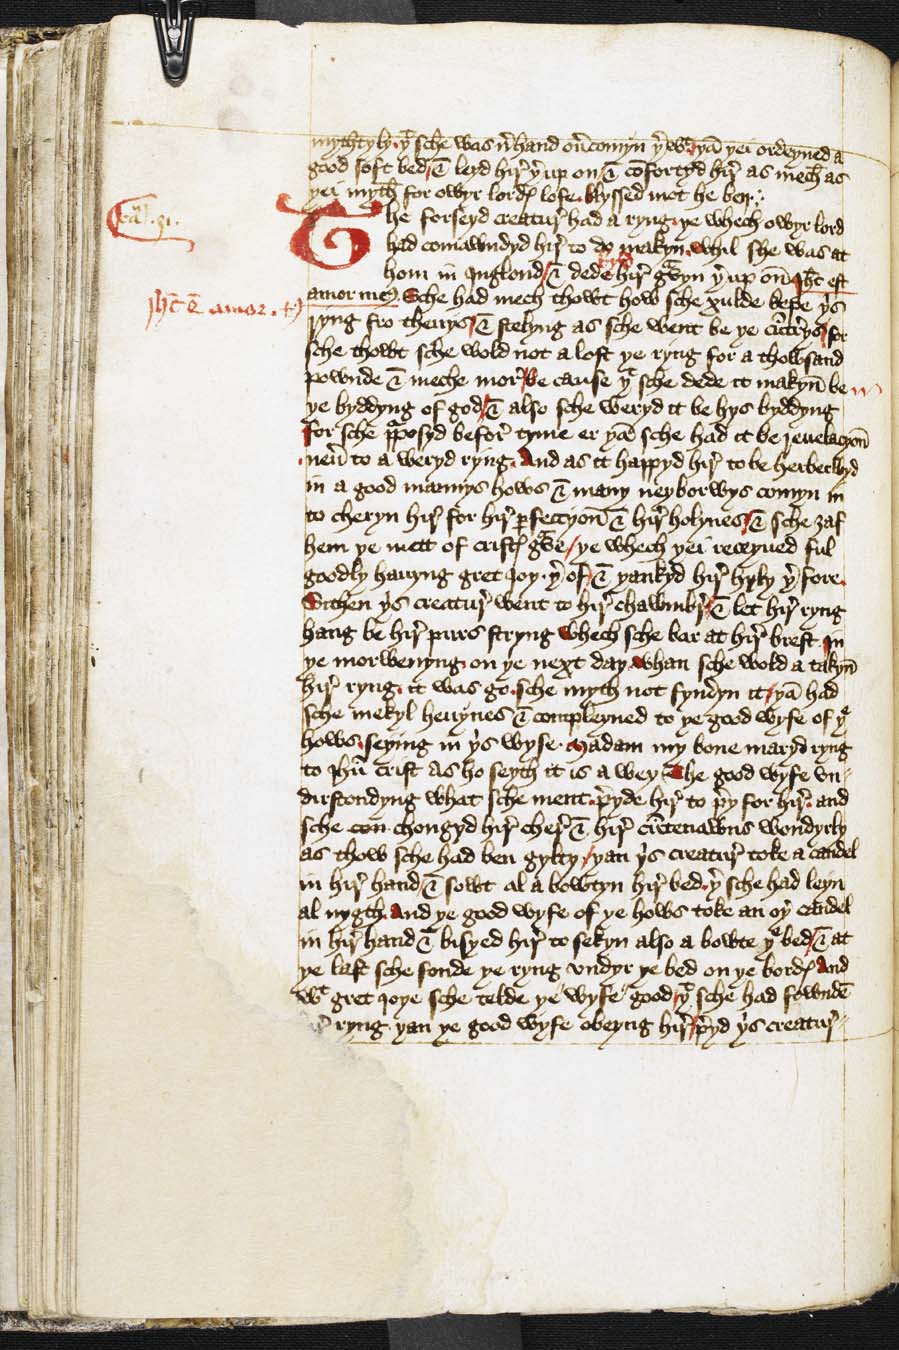 mythtyly. yͭ sche was nˀhand ouˀcomyn yˀwͭ. yā yei ordeyned a
good soft bed / & leyd hirˀ yˀ up on / & cōfortyd hirˀ as mech as
yei myth for owyr lordˀ lofe. blyssed mot he ben.
Ca͞m .31.
The forseyd creaturˀ had a ryng. ye whech owyr lord
had comawndyd hirˀ to do makyn. whil she was at
hom in Inglond / & dede hirˀ gͣuyn yˀ up on Ihc est
amor meꝰ Sche had mech thowt how sche xulde kepe yˢ
Ihc ē amor .&c
ryng fro theuys / & stelyng as sche went be ye cūtreys / for
sche thowt sche wold not a lost ye ryng for a thowsand
pownde & meche morˀ / be cause yͭ sche dede it makyn̄ be
ye byddyng of god / & also sche weryd it be hys byddyng
for sche pͬposyd beforˀ tyme er yā sche had it be reuelacyon̄
neuˀ to a weryd ryng. And as it happyd hirˀ to be herberwyd
in a good mannys hows & many neyborwys comyn in
to cheryn hirˀ for hirˀ ꝑfeccyon̄ & hirˀ holynes / & sche ȝaf
hem ye mett of cristˀ gͣue / ye whech yei receyued ful
goodly hauyng gret joy yˀof / & yankyd hirˀ hyly yˀfore.
Sithen yˢ creaturˀ went to hirˀ chawmbrˀ / & let hirˀ ryng
hang be hirˀ purs stryng whech sche bar at hirˀ brest In
ye morwenyng on ye next day whan sche wold a takyn̄
hirˀ ryng. it was go. sche myth not fyndyn it / yā had
sche mekyl heuynes & compleyned to ye good wyfe of yͤ
hows. seying in yˢ wyse. Madam my bone maryd ryng
to Ihū crist as ho seyth it is a wey. The good wyfe vn
dirstondyng what sche ment. pˀyde hirˀ to pˀy for hirˀ. and
sche con chongyd hirˀ cherˀ & hirˀ cūtenawns wondyrly
as thow sche had ben gylty. / yan yˢ creaturˀ toke a candel
in hirˀ hand / & sowt al a bowtyn hirˀ bed. yˀ sche had leyn
al nygth. And ye good wyfe of ye hows toke an oyˀ candel
in hirˀ hand & bisyed hirˀ to sekyn also a bowte yͤ bed / & at
ye last sche fonde ye ryng vndyr ye bed on ye bordˀ And
wͭ gret joye sche telde ye wyfe good / yͭ sche had fowndē
hirˀ ryng. yan ye good wyfe obeyng hirˀ / pˀyd yˢ creaturˀ